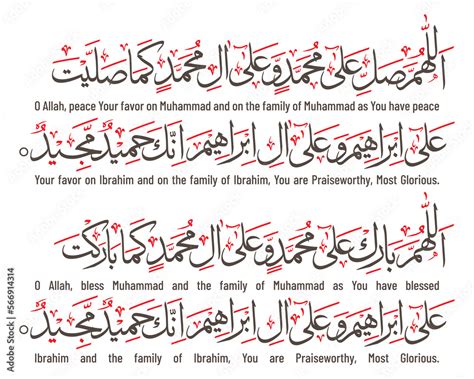 اَللّٰهُمَّ صَلِّ عَلٰى مُحَمَّدٍ وَّعَلٰى اٰلِ مُحَمَّدٍ كَمَا صَلَّيْتَ
O Allah, peace Your favor on Muhammad and on the family of Muhammad as You have peace
عَلٰى اِبْرَاهِيْمَ وَعَلٰى اٰلِ اِبْرَاهِيْمَ اِنَّكَ حَمِيْدٌ مَّجِيْدٌ
Your favor on Ibrahim and on the family of Ibrahim, You are Praiseworthy, Most Glorious.
اَللّٰهُمَّ بَارِكْ عَلٰى مُحَمَّدٍ وَّعَلٰى اٰلِ مُحَمَّدٍ كَمَا بَارَكْتَ
O Allah, bless Muhammad and the family of Muhammad as You have blessed
عَلٰى اِبْرَاهِيْمَ وَعَلٰى اٰلِ اِبْرَاهِيْمَ اِنَّكَ حَمِيْدٌ مَّجِيْدٌ
Ibrahim and the family of Ibrahim, You are Praiseworthy, Most Glorious.
Adobe Stock | #566914314